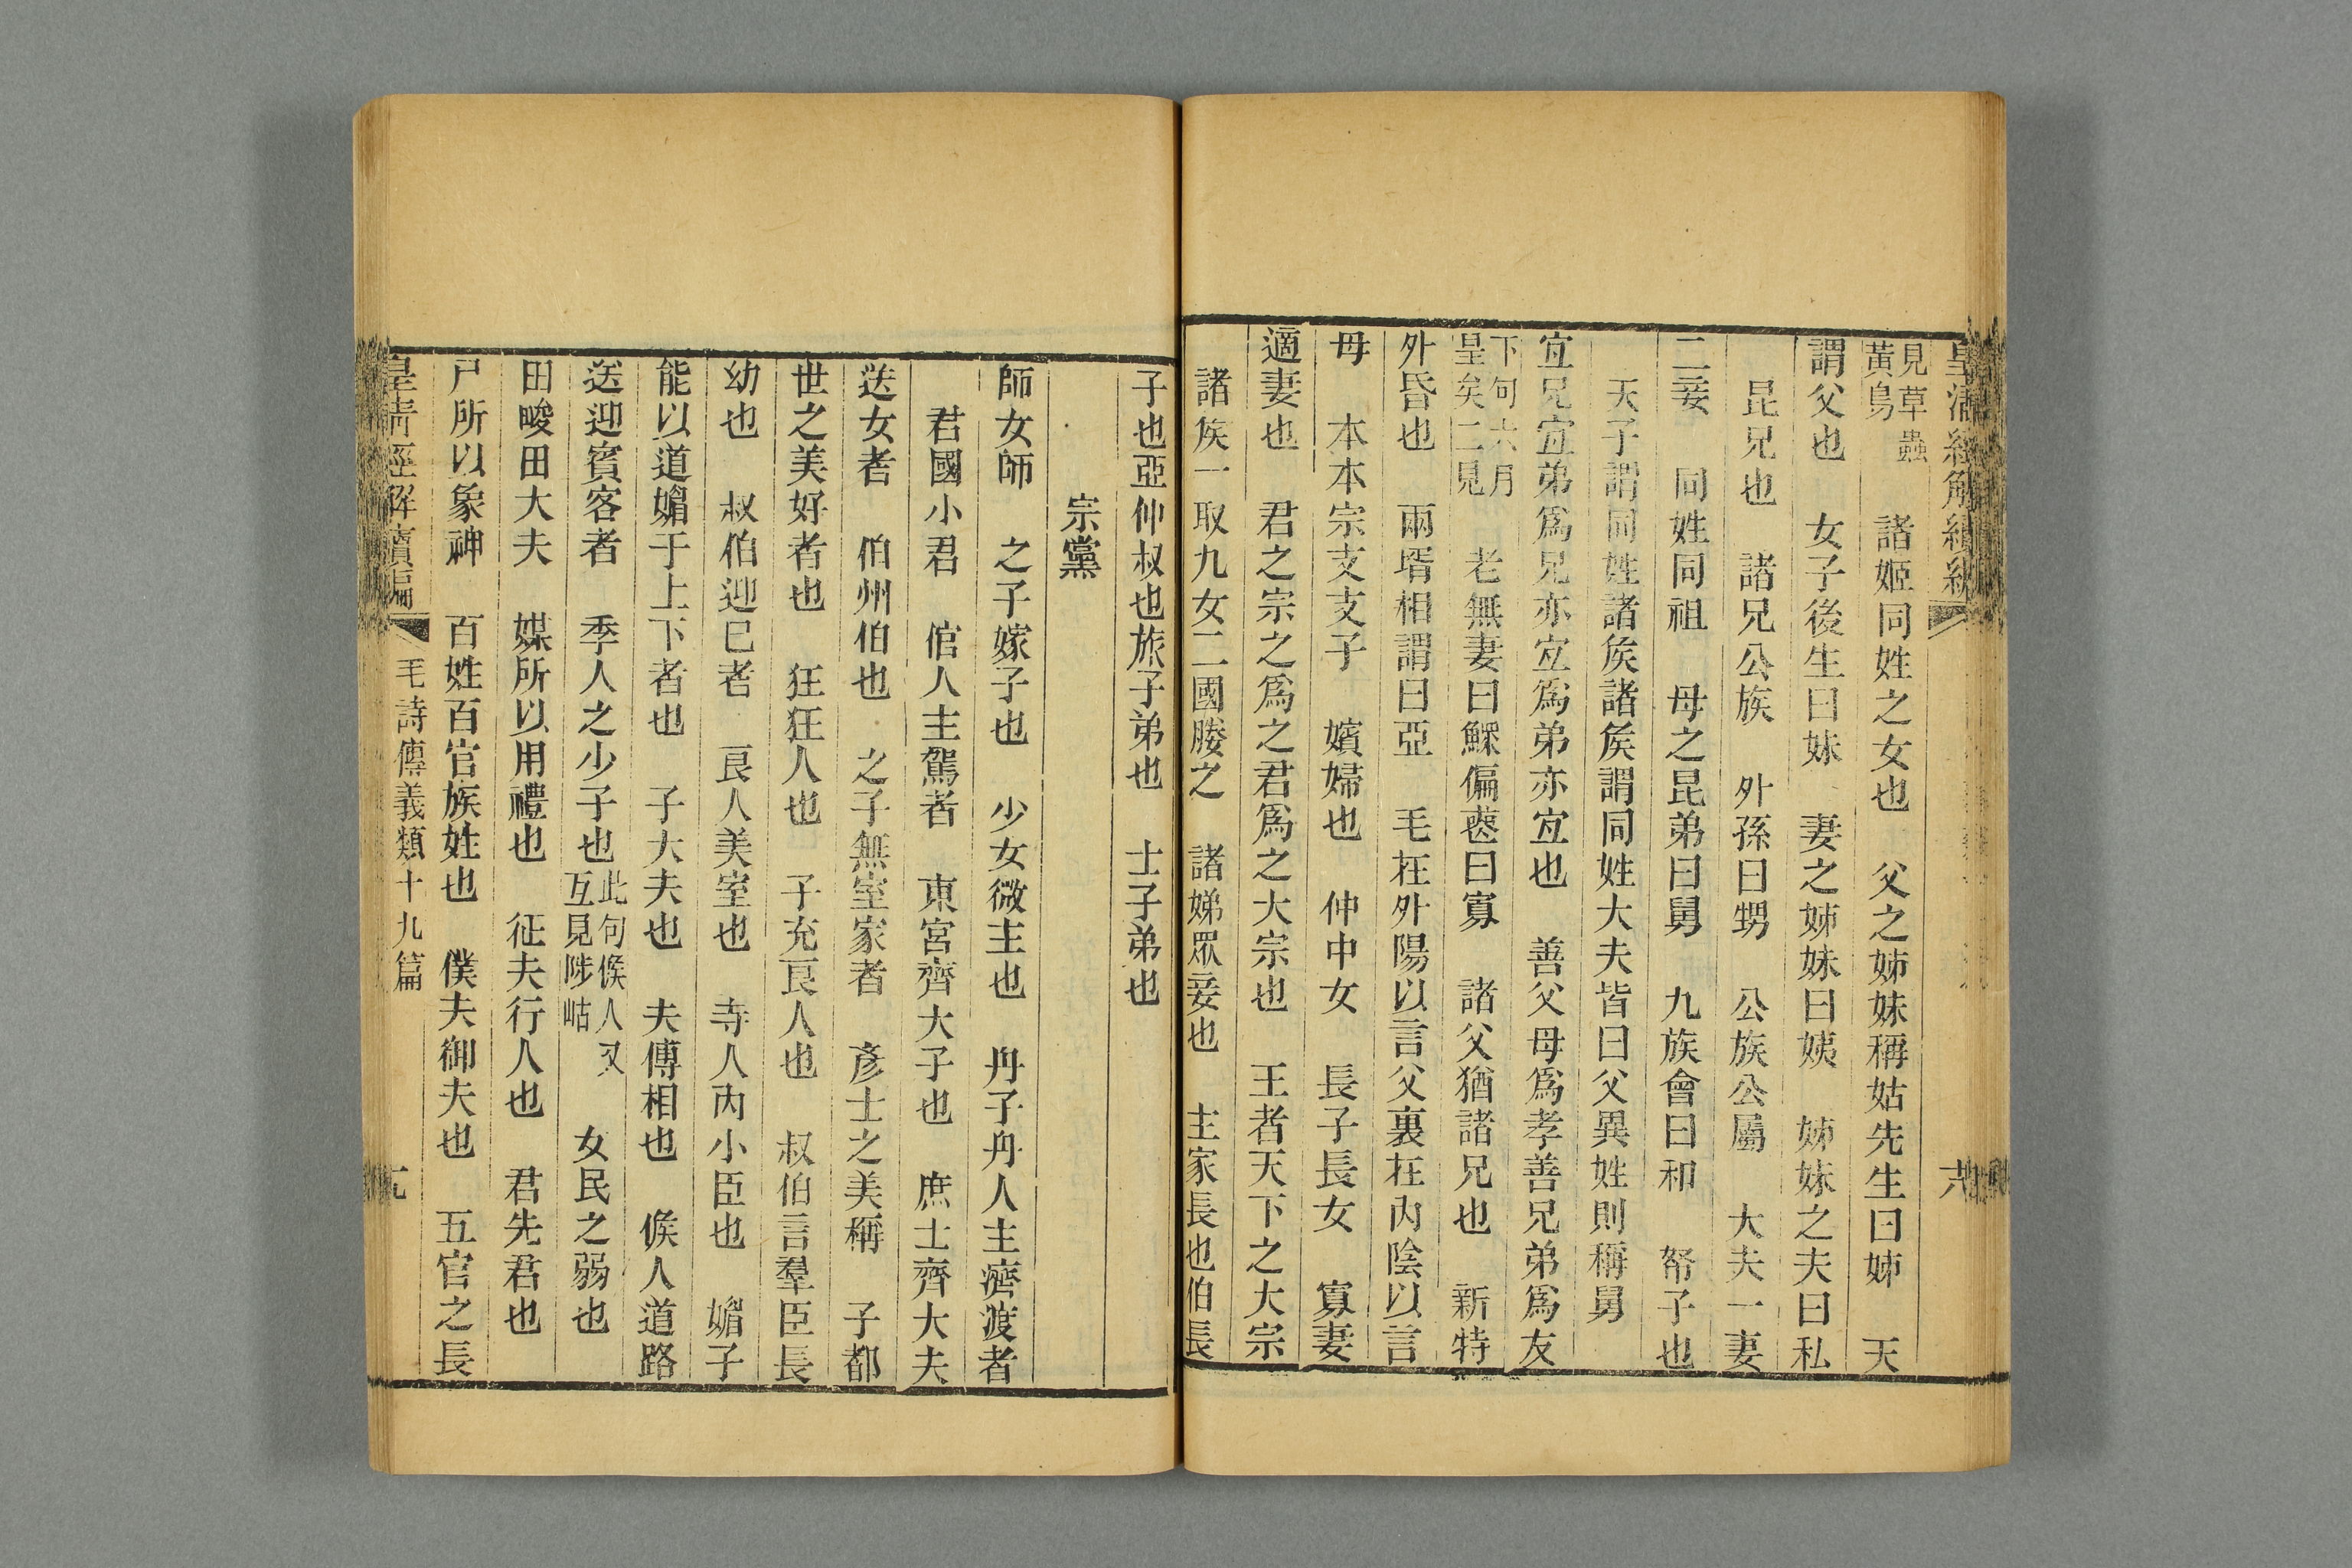 皇淸經解續編
六
見草蟲黃鳥　諸姬同姓之女也　父之姊妹稱姑先生曰姊　天
謂父也　女子後生曰妹　妻之姊妹曰姨　姊妹之夫曰私
昆兄也　諸兄公族　外孫曰甥　公族公屬　大夫一妻
二妾　同姓同祖　母之昆弟曰舅　九族會曰和　帑子也
天子謂同姓諸矦諸矦謂同姓大夫皆曰父異姓則稱舅
宐兄宐弟爲兄亦宐爲弟亦宐也　善父母爲孝善兄弟爲友
下句六月皇矣二見　老無妻曰鰥偏䘮曰寡　諸父猶諸兄也　新特
外昏也　兩壻相謂曰亞　毛在外陽以言父裏在內陰以言
母　本本宗支支子　嬪婦也　仲中女　長子長女　寡妻
適妻也　君之宗之爲之君爲之大宗也　王者天下之大宗
諸矦一取九女二國媵之　諸娣眾妾也　主家長也伯長
子也亞仲叔也旅子弟也　士子弟也
宗黨
師女師　之子嫁子也　少女微主也　舟子舟人主濟渡者
君國小君　倌人主駕者　東宮齊大子也　庶士齊大夫
送女者　伯州伯也　之子無室家者　彥士之美稱　子都
世之美好者也　狂狂人也　子充良人也　叔伯言羣臣長
幼也　叔伯迎已者　良人美室也　寺人內小臣也　媚子
能以道媚于上下者也　子大夫也　夫傅相也　候人道路
送迎賓客者　季人之少子也此句候人又互見陟岵　女民之弱也
田畯田大夫　媒所以用禮也　征夫行人也　君先君也
尸所以象神　百姓百官族姓也　僕夫御夫也　五官之長
皇淸經解續編　毛詩傳義類十九篇